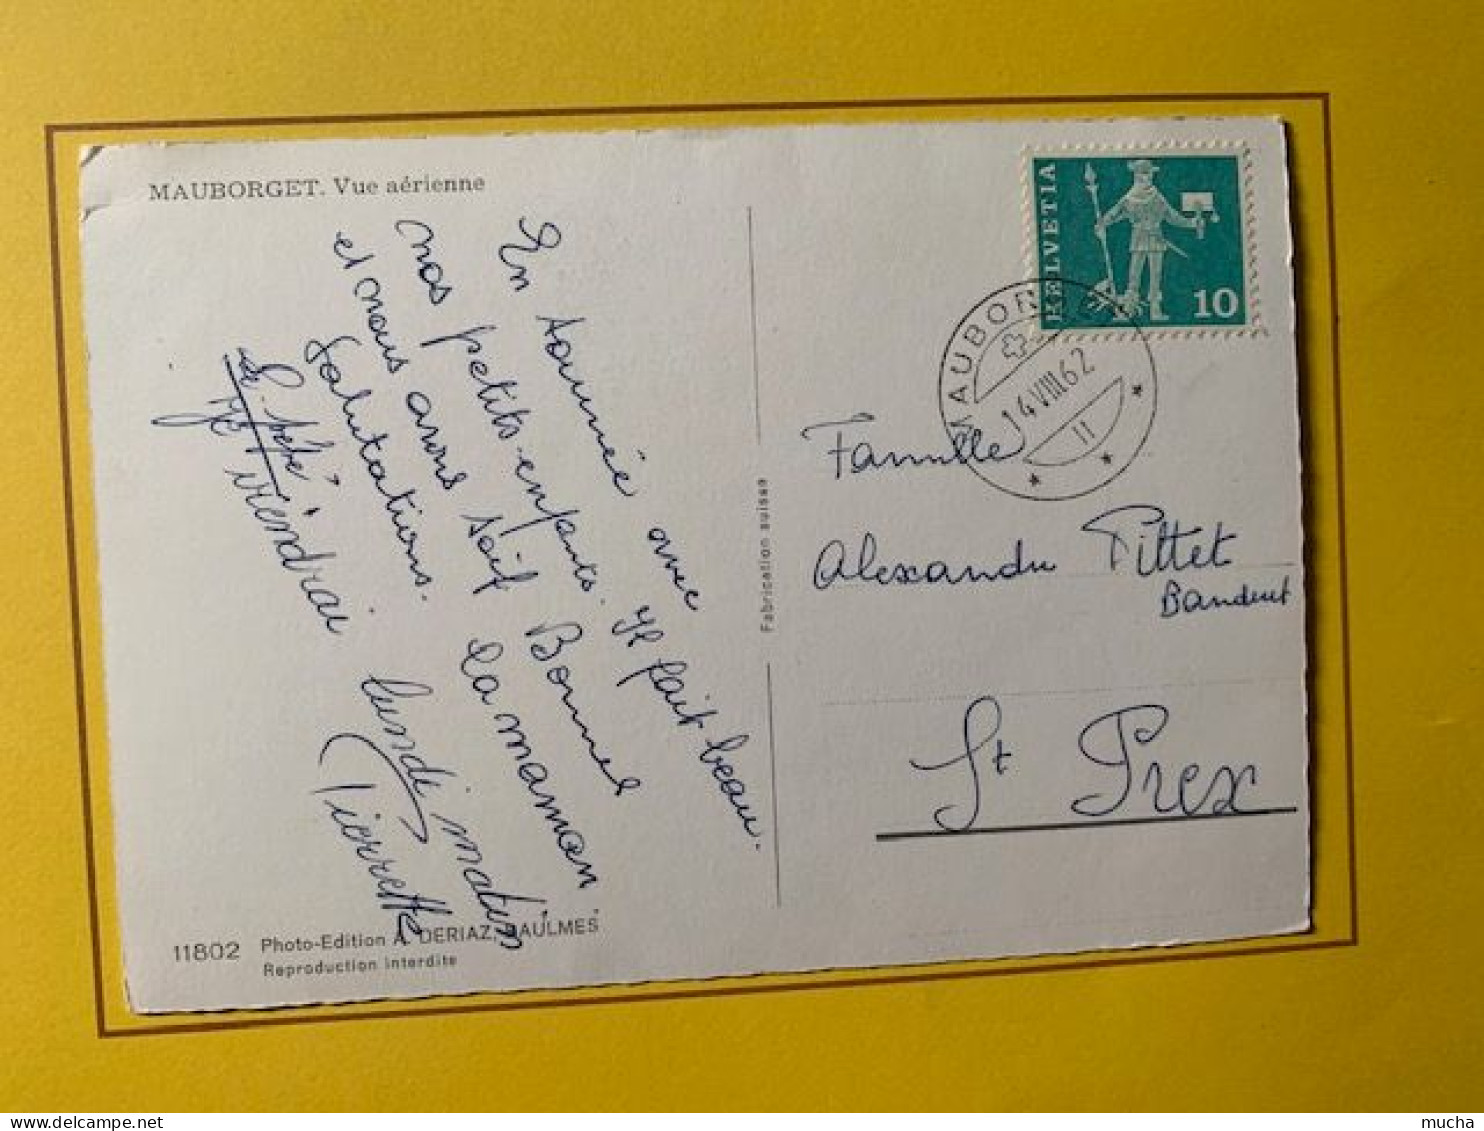 MAUBORGET. Vue aérienne
En tournée avec
nos petits-enfants. Il fait beau.
et nous avons soif Bonnes
Salutations. La maman
et bébé
Je viendrai lundi matin
Pierrette
11802 Photo-Edition A. DERIAZ, BAULMES
Reproduction interdite
Fabrication suisse
HELVETIA
10
MAUBORGET
14.VIII.62
11
Famille
Alexandre Pittet
St Prex
mucha